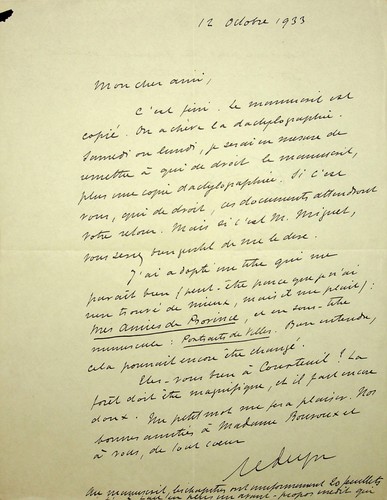 12 Octobre 1933
Mon cher ami,
C'est fini. Le manuscrit est
copié. On achève la dactylographie.
Samedi ou lundi, je serai en mesure de
remettre à qui de droit le manuscrit,
plus une copie dactylographiée. Si c'est
vous, qui de droit, ces documents attendront
votre retour. Mais si c'est M. Miquel,
vous serez bien gentil de me le dire.
J'ai adopté un titre qui me
paraît bien (peut-être parce que je n'ai
rien trouvé de mieux, mais il me plaît) :
Mes Amies de Province, et en sous-titre
minuscule : Portraits de Villes. Bien entendu,
cela pourrait encore être changé.
Êtes-vous bien à Courteuil ? La
forêt doit être magnifique, et il fait encore
doux. Un petit mot me fera plaisir. Nos
bonnes amitiés à Madame Boursoux et
à vous, de tout cœur
Au manuscrit, les chapitres ont uniformément 20 feuillets